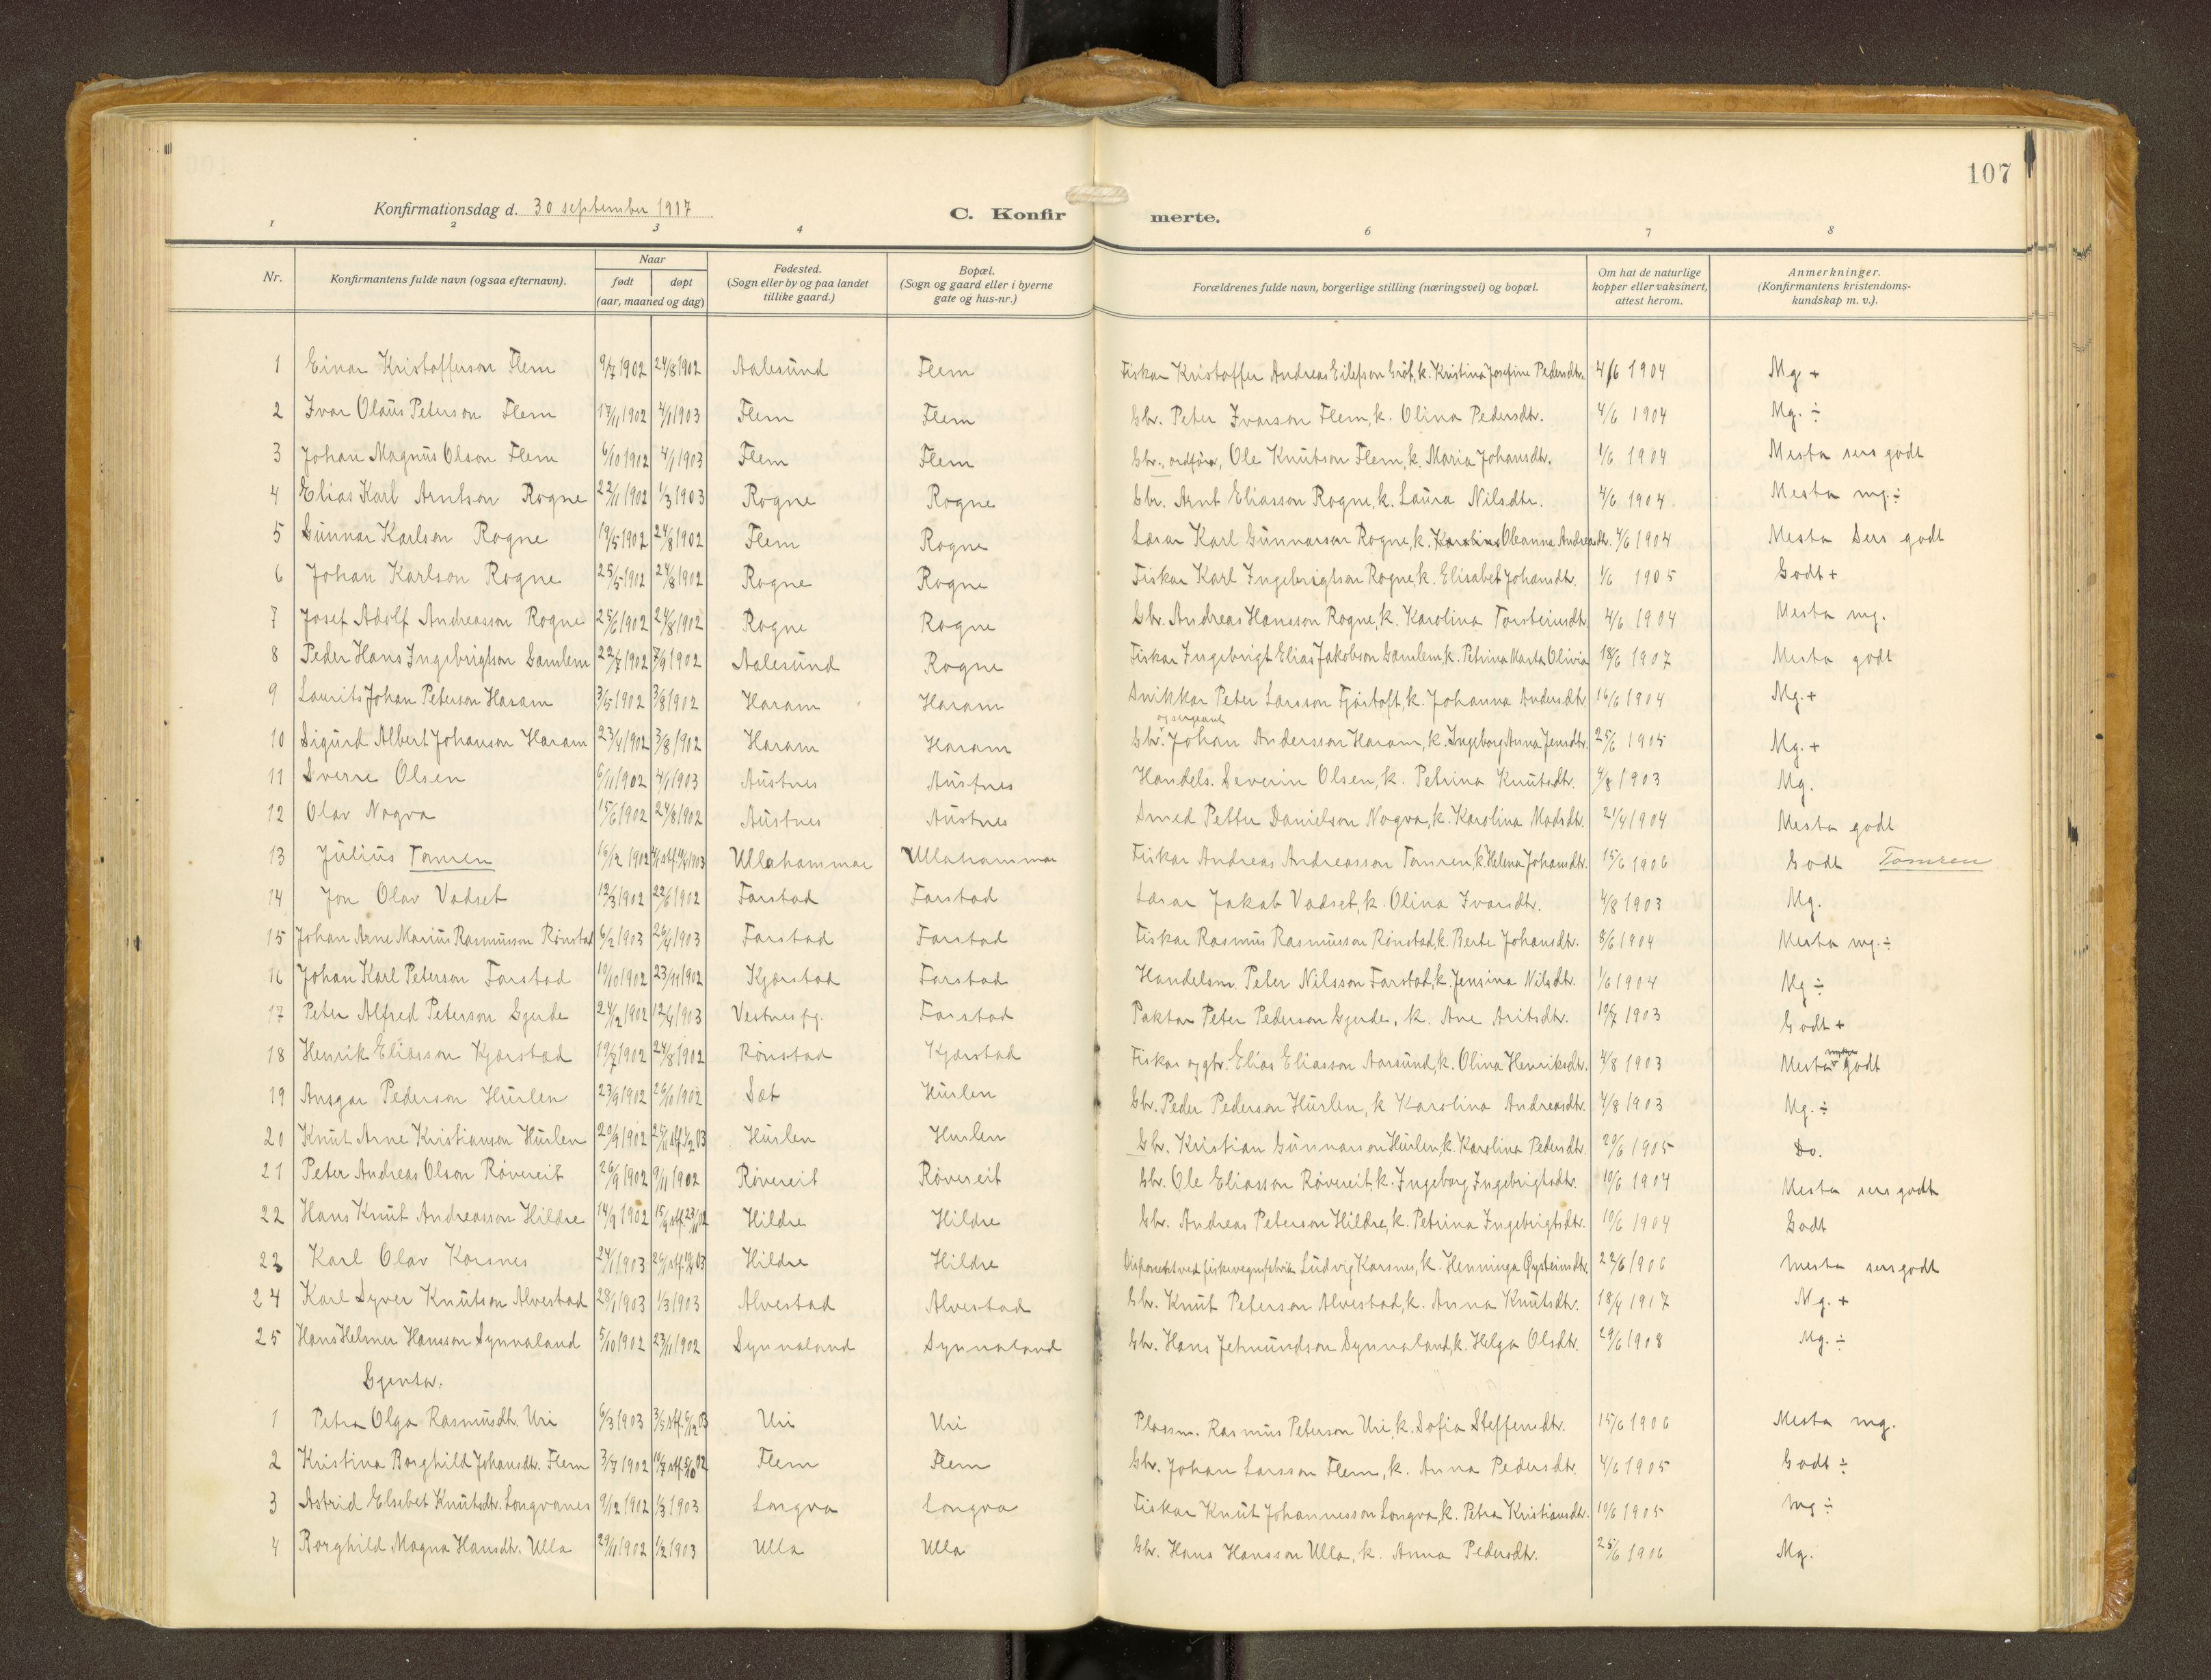 107
Konfirmationsdag d. 30 september 1917
C. Konfir merte.
1 2 3 4 6 7 8
Nr. Konfirmantens fulde navn (ogsaa efternavn). Naar født døpt (aar, maaned og dag) Fødested. (Sogn eller by og paa landet tillike gaard.) Bopæl. (Sogn og gaard eller i byerne gate og hus-nr.) Forældrenes fulde navn, borgerlige stilling (næringsvei) og bopæl. Om hat de naturlige kopper eller vaksinert, attest herom. Anmerkninger. (Konfirmantens kristendomskundskap m. v.).
1 Einar Kristofferson Flem 9/7 1902 24/8 1902 Aalesund Flem Fiskar Kristoffer Andreas Eilefson Gröt, k. Kristina Josefine Pedersdtr. 4/6 1904 Mg +
2 Ivar Olaus Peterson Flem 17/11 1902 4/1 1903 Flem Flem Gbr. Peter Ivarson Flem, k. Olina Pedersdtr. 4/6 1904 Mg. ÷
3 Johan Magnus Olson Flem 6/10 1902 4/1 1903 Flem Flem Gbr., ordförar, Ole Knutson Flem, k. Maria Johansdtr. 1/6 1904 Mesta sers godt
4 Elias Karl Arntson Rogne 22/11 1902 1/3 1903 Rogne Rogne Gbr. Arnt Eliasson Rogne, k. Laura Nilsdtr. 4/6 1904 Mesta mg. ÷
5 Gunnar Karlson Rogne 19/5 1902 24/8 1902 Flem Rogne Lærar Karl Gunnarson Rogne, k. Karolina Oleanna Andreasdtr. 4/6 1904 Mesta Sers godt
6 Johan Karlson Rogne 25/5 1902 24/8 1902 Rogne Rogne Fiskar Karl Ingebrigtson Rogne, k. Elisabet Johansdtr. 1/6 1905 Godt +
7 Josef Adolf Andreasson Rogne 25/6 1902 24/8 1902 Rogne Rogne Gbr. Andreas Hansson Rogne, k. Karolina Torsteinsdtr. 4/6 1904 Mesta mg.
8 Peder Hans Ingebrigtson Gamlem 22/7 1902 7/9 1902 Aalesund Rogne Fiskar Ingebrigt Elias Jakobson Gamlem, k. Petrina Marta Olivia 18/6 1907 Mesta godt
9 Laurits Johan Peterson Haram 3/5 1902 3/8 1902 Haram Haram Snikkar Peter Larsson Fjörtoft, k. Johanna Andersdtr. 16/6 1904 Mg. +
10 Sigurd Albert Johanson Haram 23/4 1902 3/8 1902 Haram Haram Gbr. og sergeant Johan Andersson Haram, k. Ingeborg Anna Jensdtr. 25/6 1905 Mg. +
11 Sverre Olsen 6/11 1902 4/1 1903 Austnes Austnes Handels. Severin Olsen, k. Petrina Knutsdtr. 4/8 1903 Mg.
12 Olav Nogva 15/6 1902 24/8 1902 Austnes Austnes Smed Petter Danielson Nogva, k. Karolina Madsdtr. 21/4 1904 Mesta godt
13 Julius Tomren 16/12 1902 Ullahammar Ullahammar Fiskar Andreas Andreasson Tomren, k. Helena Johansdtr. 15/6 1906 Godt Tomren
14 Jon Olav Vadset 12/3 1902 22/6 1902 Farstad Farstad Lærar Jakob Vadset, k. Olina Ivarsdtr. 4/8 1903 Mg.
15 Johan Arne Marius Rasmusson Rönstad 6/2 1903 26/4 1903 Farstad Farstad Fiskar Rasmus Rasmusson Rönstad, k. Berte Johansdtr. 8/6 1904 Mesta mg. ÷
16 Johan Karl Peterson Farstad 10/10 1902 23/11 1902 Kjærstad Farstad Handelsm. Peter Nilsson Farstad, k. Jensina Nilsdtr. 1/6 1904 Mg ÷
17 Peter Alfred Peterson Gjerde 24/12 1902 12/4 1903 Vestnes pg. Farstad Paktar Peter Pederson Gjerde, k. Ane Aritsdtr. 10/7 1903 Godt +
18 Henrik Eliasson Kjærstad 19/7 1902 24/8 1902 Rönstad Kjærstad Fiskar og gbr. Elias Eliasson Aarsund, k. Olina Henriksdtr. 4/8 1903 Mesta godt
19 Ansgar Pederson Hurlen 23/9 1902 26/10 1902 Sæt Hurlen Gbr. Peder Pederson Hurlen, k Karolina Andreasdtr. 4/8 1903 Mg. ÷
20 Knut Arne Kristianson Hurlen 20/9 1902 Hurlen Hurlen Gbr. Kristian Gunnarson Hurlen, k. Karolina Pedersdtr. 20/6 1905 Do.
21 Peter Andreas Olson Rövereit 26/9 1902 9/11 1902 Rövereit Rövereit Gbr. Ole Eliasson Rövereit, k. Ingeborg Ingebrigtsdtr. 10/6 1904 Mesta sers godt
22 Hans Knut Andreasson Hildre 14/9 1902 15/9 stf. 23/11 02 Hildre Hildre Gbr. Andreas Peterson Hildre, k. Petrina Ingebrigtsdtr. 10/6 1904 Godt
23 Karl Olav Korsnes 24/1 1903 Hildre Hildre Disponent ved Ludvig Korsnes, k. Henninga Øysteinsdtr. 22/6 1906 Mesta sers godt
24 Karl Syver Knutson Alvestad 28/1 1903 1/3 1903 Alvestad Alvestad Gbr. Knut Peterson Alvestad, k. Anna Knutsdtr. 18/4 1917 Mg. +
25 Hans Helmer Hansson Synnaland 5/10 1902 23/11 1902 Synnaland Synnaland Gbr. Hans Jetmundson Synnaland, k. Helga Olsdtr. 29/6 1908 Mg. ÷
Gjentar.
1 Petra Olga Rasmusdtr. Uri 6/3 1903 Uri Uri Plassm. Rasmus Peterson Uri, k. Sofia Steffensdtr. 15/6 1906 Mesta mg.
2 Kristina Borghild Johansdtr. Flem 3/7 1902 Flem Flem Gbr. Johan Larsson Flem, k. Anna Pedersdtr. 4/6 1905 Godt ÷
3 Astrid Elsebet Knutsdtr. Longvanes 9/12 1902 1/3 1903 Longva Longva Fiskar Knut Johannesson Longva, k. Petra Kristiansdtr. 10/6 1905 mg ÷
4 Borghild Magna Hansdtr. Ulla 29/11 1902 1/2 1903 Ulla Ulla Gbr. Hans Hansson Ulla, k. Anna Pedersdtr. 25/6 1906 Mg.